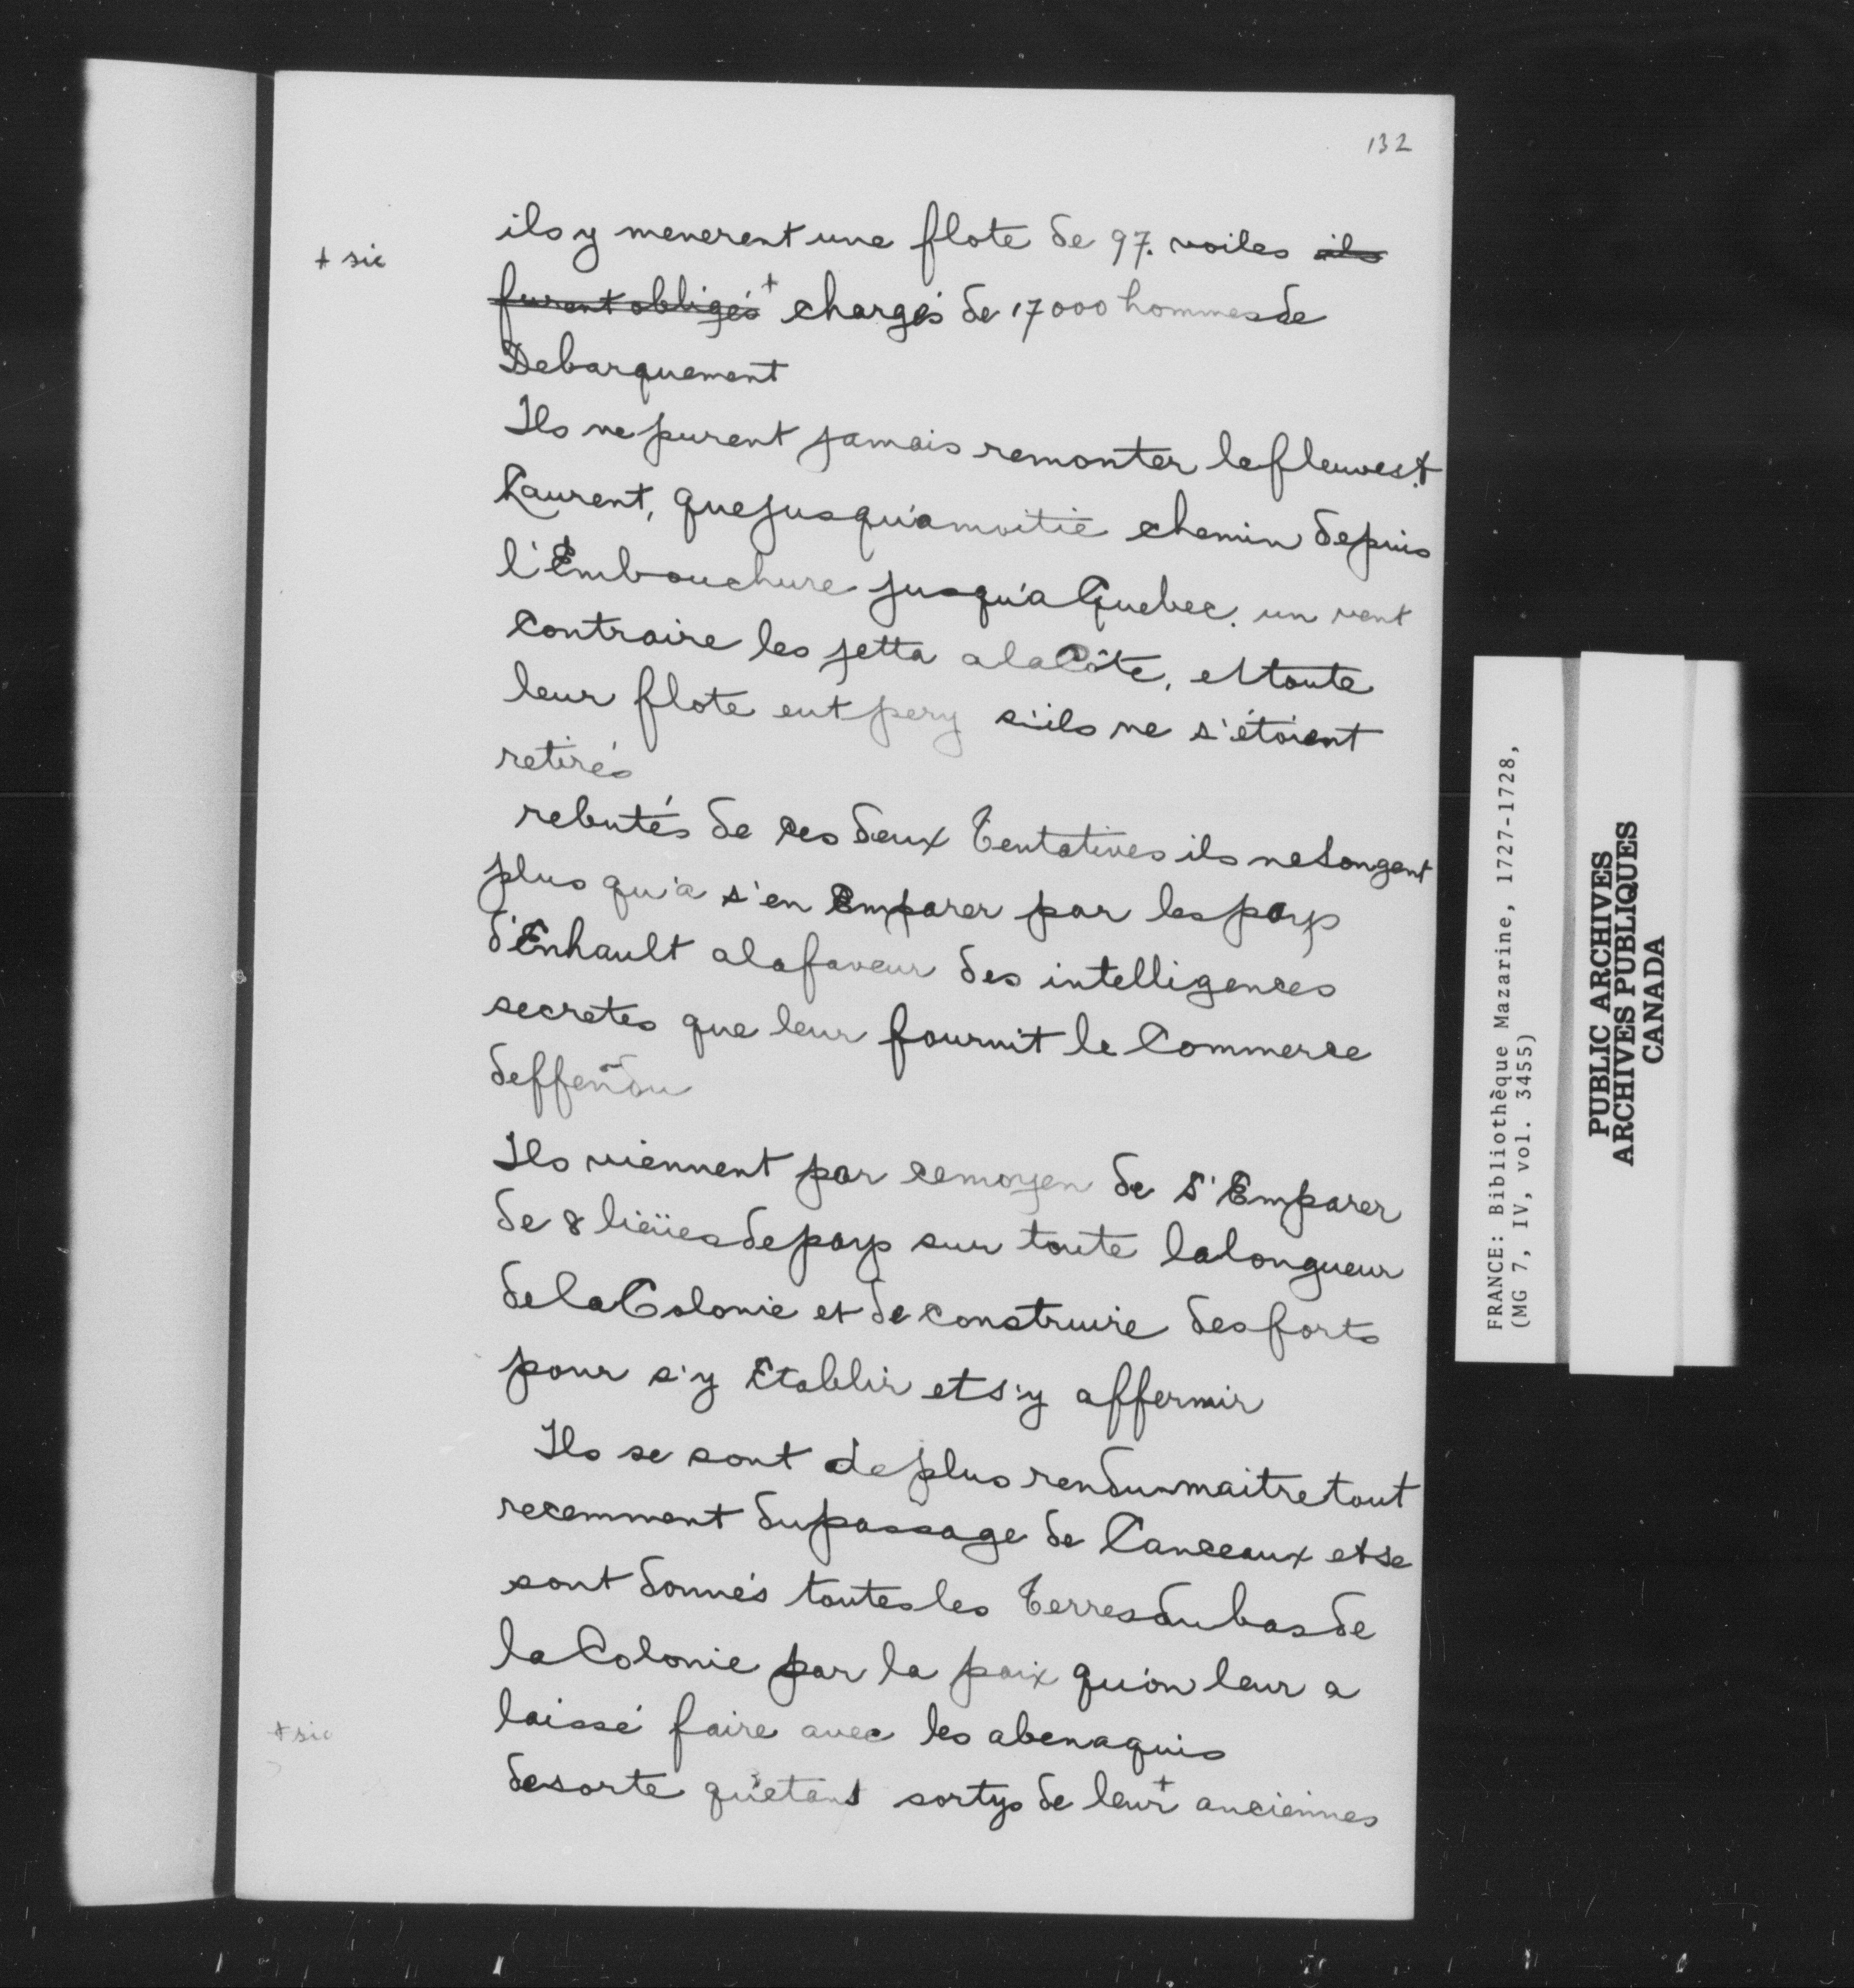 132
+ sic
ils y menerent une flote de 97. voiles ils
furent obligés + chargés de 17000 hommes de
Debarquement
Ils ne purent jamais remonter le fleuve st
Laurent, que jusqu'a moitié chemin depuis
l'Embouchure jusqu'a Quebec. un vent
contraire les jetta a la Côte, et toute
leur flote eut pery s'ils ne s'étoient
retirés
rebutés de ces deux Tentatives ils ne songent
plus qu'a s'en Emparer par les pays
d'Enhault a la faveur des intelligences
secretes que leur fournit le Commerce
deffendu
Ils viennent par ce moyen de s'Emparer
de 8 lieües de pays sur toute la longueur
de la Colonie et de construire des forts
pour s'y Etablir et s'y affermir
Ils se sont de plus rendu maitre tout
recemment du passage de Canceaux et se
sont donnés toutes les Terres du bas de
la Colonie par la paix qu'on leur a
laissé faire avec les abenaquis
+ sic
de sorte qu'etant sortys de leur + anciennes
FRANCE: Bibliothèque Mazarine, 1727-1728,
(MG 7, IV, vol. 3455)
PUBLIC ARCHIVES
ARCHIVES PUBLIQUES
CANADA